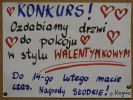 KONKURS!
Ozdabiamy drzwi
do pokoju
w stylu WALENTYNKOWYM
Do 14-go lutego macie
czas. Nagrody SŁODKIE!